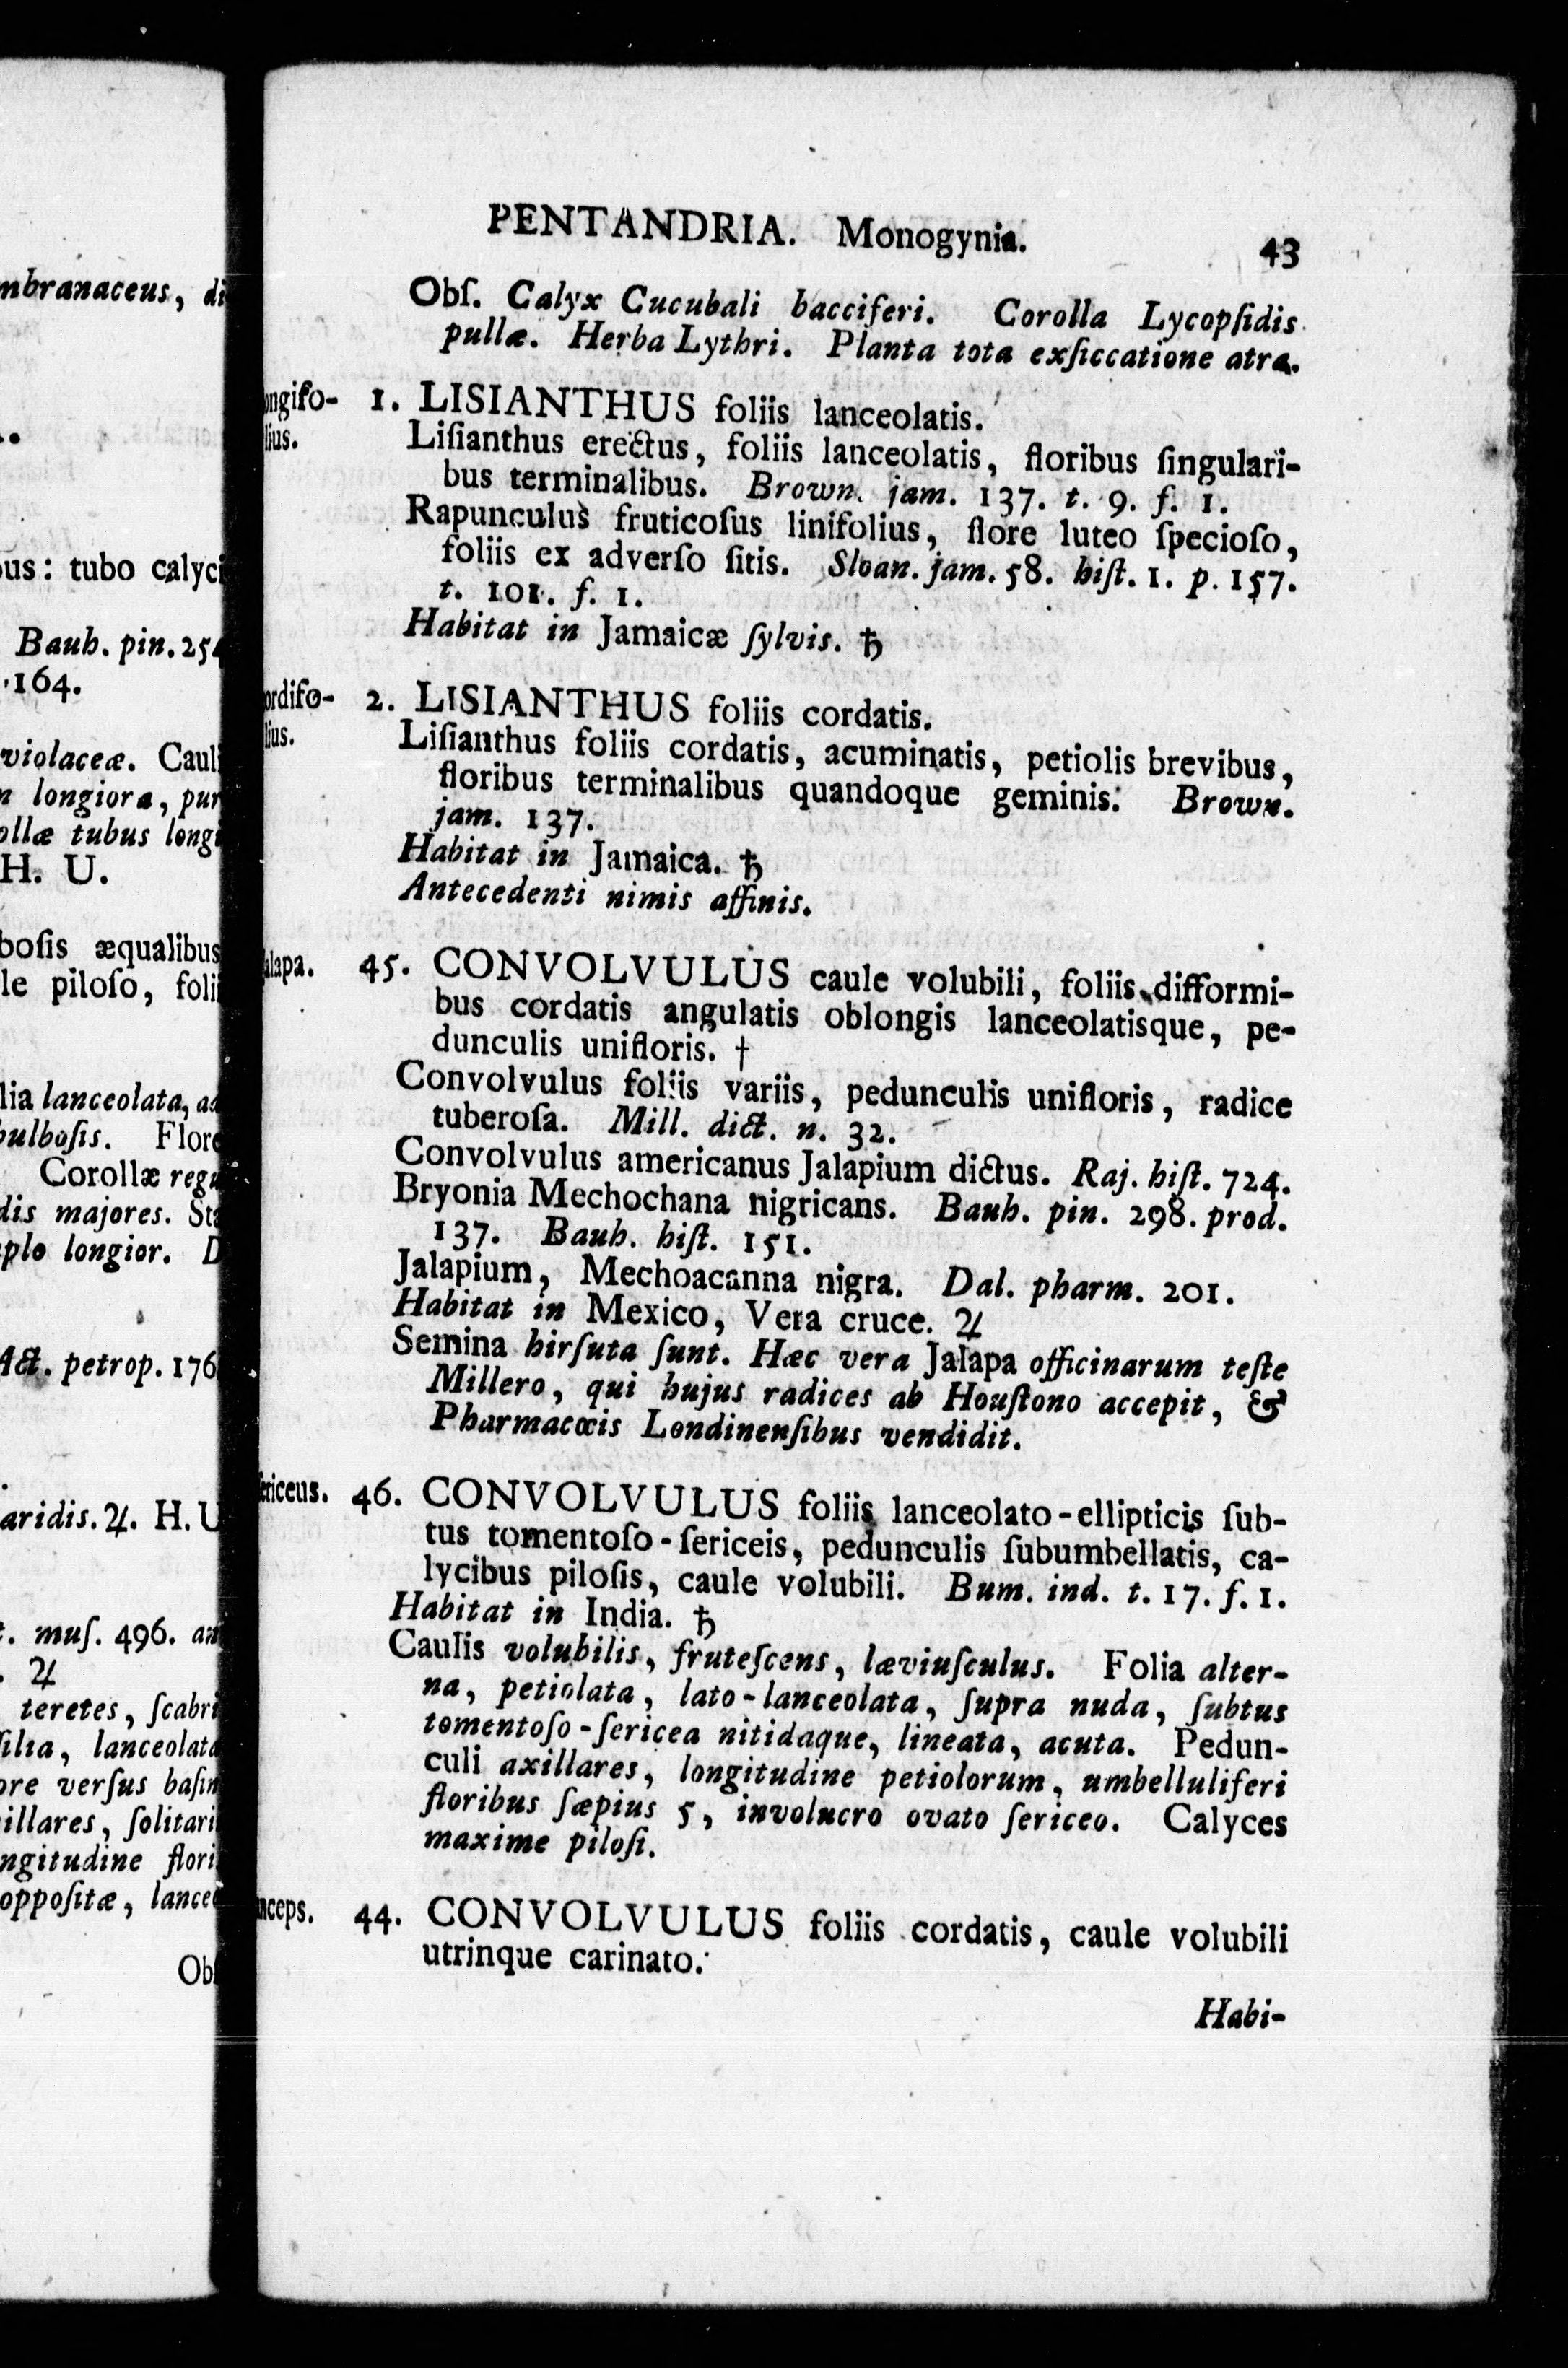 mbranaceus, di
us: tubo calyci
Bauh. pin. 254
164.
violaceæ. Cauli
longiora, pur
ollæ tubus longi
H. U.
bosis æqualibus
le piloso, folii
lia lanceolata, ad
bulbosis. Flore
Corollæ regu
dis majores. Sta
plo longior. D
Act. petrop. 176
aridis. ♃. H. U
mus. 496. an
♃
teretes, ſcabri
ſilia, lanceolata
ore verſus baſin
illares, ſolitari
ngitudine flori
oppoſitæ, lanceo
Obſ
PENTANDRIA. Monogynia. 43
Obſ. Calyx Cucubali bacciferi. Corolla Lycopſidis
pullæ. Herba Lythri. Planta tota exſiccatione atra.
ongifo- 1. LISIANTHUS foliis lanceolatis.
lius. Liſianthus erectus, foliis lanceolatis, floribus ſingulari-
bus terminalibus. Brown. jam. 137. t. 9. f. 1.
Rapunculus fruticoſus linifolius, flore luteo ſpecioſo,
foliis ex adverſo ſitis. Sloan. jam. 58. hiſt. 1. p. 157.
t. 101. f. 1.
Habitat in Jamaicæ ſylvis. ♄
ordifo- 2. LISIANTHUS foliis cordatis.
lius. Liſianthus foliis cordatis, acuminatis, petiolis brevibus,
floribus terminalibus quandoque geminis. Brown.
jam. 137.
Habitat in Jamaica. ♄
Antecedenti nimis affinis.
alapa. 45. CONVOLVULUS caule volubili, foliis difformi-
bus cordatis angulatis oblongis lanceolatisque, pe-
dunculis unifloris. †
Convolvulus foliis variis, pedunculis unifloris, radice
tuberoſa. Mill. dict. n. 32.
Convolvulus americanus Jalapium dictus. Raj. hiſt. 724.
Bryonia Mechochana nigricans. Bauh. pin. 298. prod.
137. Bauh. hiſt. 151.
Jalapium, Mechoacanna nigra. Dal. pharm. 201.
Habitat in Mexico, Vera cruce. ♃
Semina hirſuta ſunt. Hæc vera Jalapa officinarum teſte
Millero, qui hujus radices ab Houſtono accepit, &
Pharmacœis Londinenſibus vendidit.
ſericeus. 46. CONVOLVULUS foliis lanceolato-ellipticis ſub-
tus tomentoſo-ſericeis, pedunculis ſubumbellatis, ca-
lycibus piloſis, caule volubili. Bum. ind. t. 17. f. 1.
Habitat in India. ♄
Caulis volubilis, fruteſcens, læviuſculus. Folia alter-
na, petiolata, lato-lanceolata, ſupra nuda, ſubtus
tomentoſo-ſericea nitidaque, lineata, acuta. Pedun-
culi axillares, longitudine petiolorum, umbelluliferi
floribus ſæpius 5, involucro ovato ſericeo. Calyces
maxime piloſi.
nceps. 44. CONVOLVULUS foliis cordatis, caule volubili
utrinque carinato.
Habi-